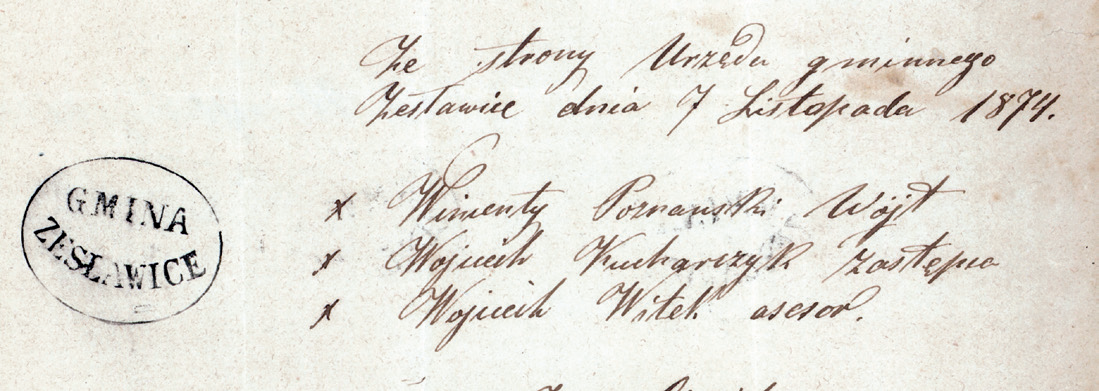 Ze strony Urzędu gminnego
Zesławice dnia 7 Listopada 1874.
GMINA
ZESŁAWICE
x Wincenty Poznański Wójt
x Wojciech Kucharczyk zastępca
x Wojciech Witek asesor.